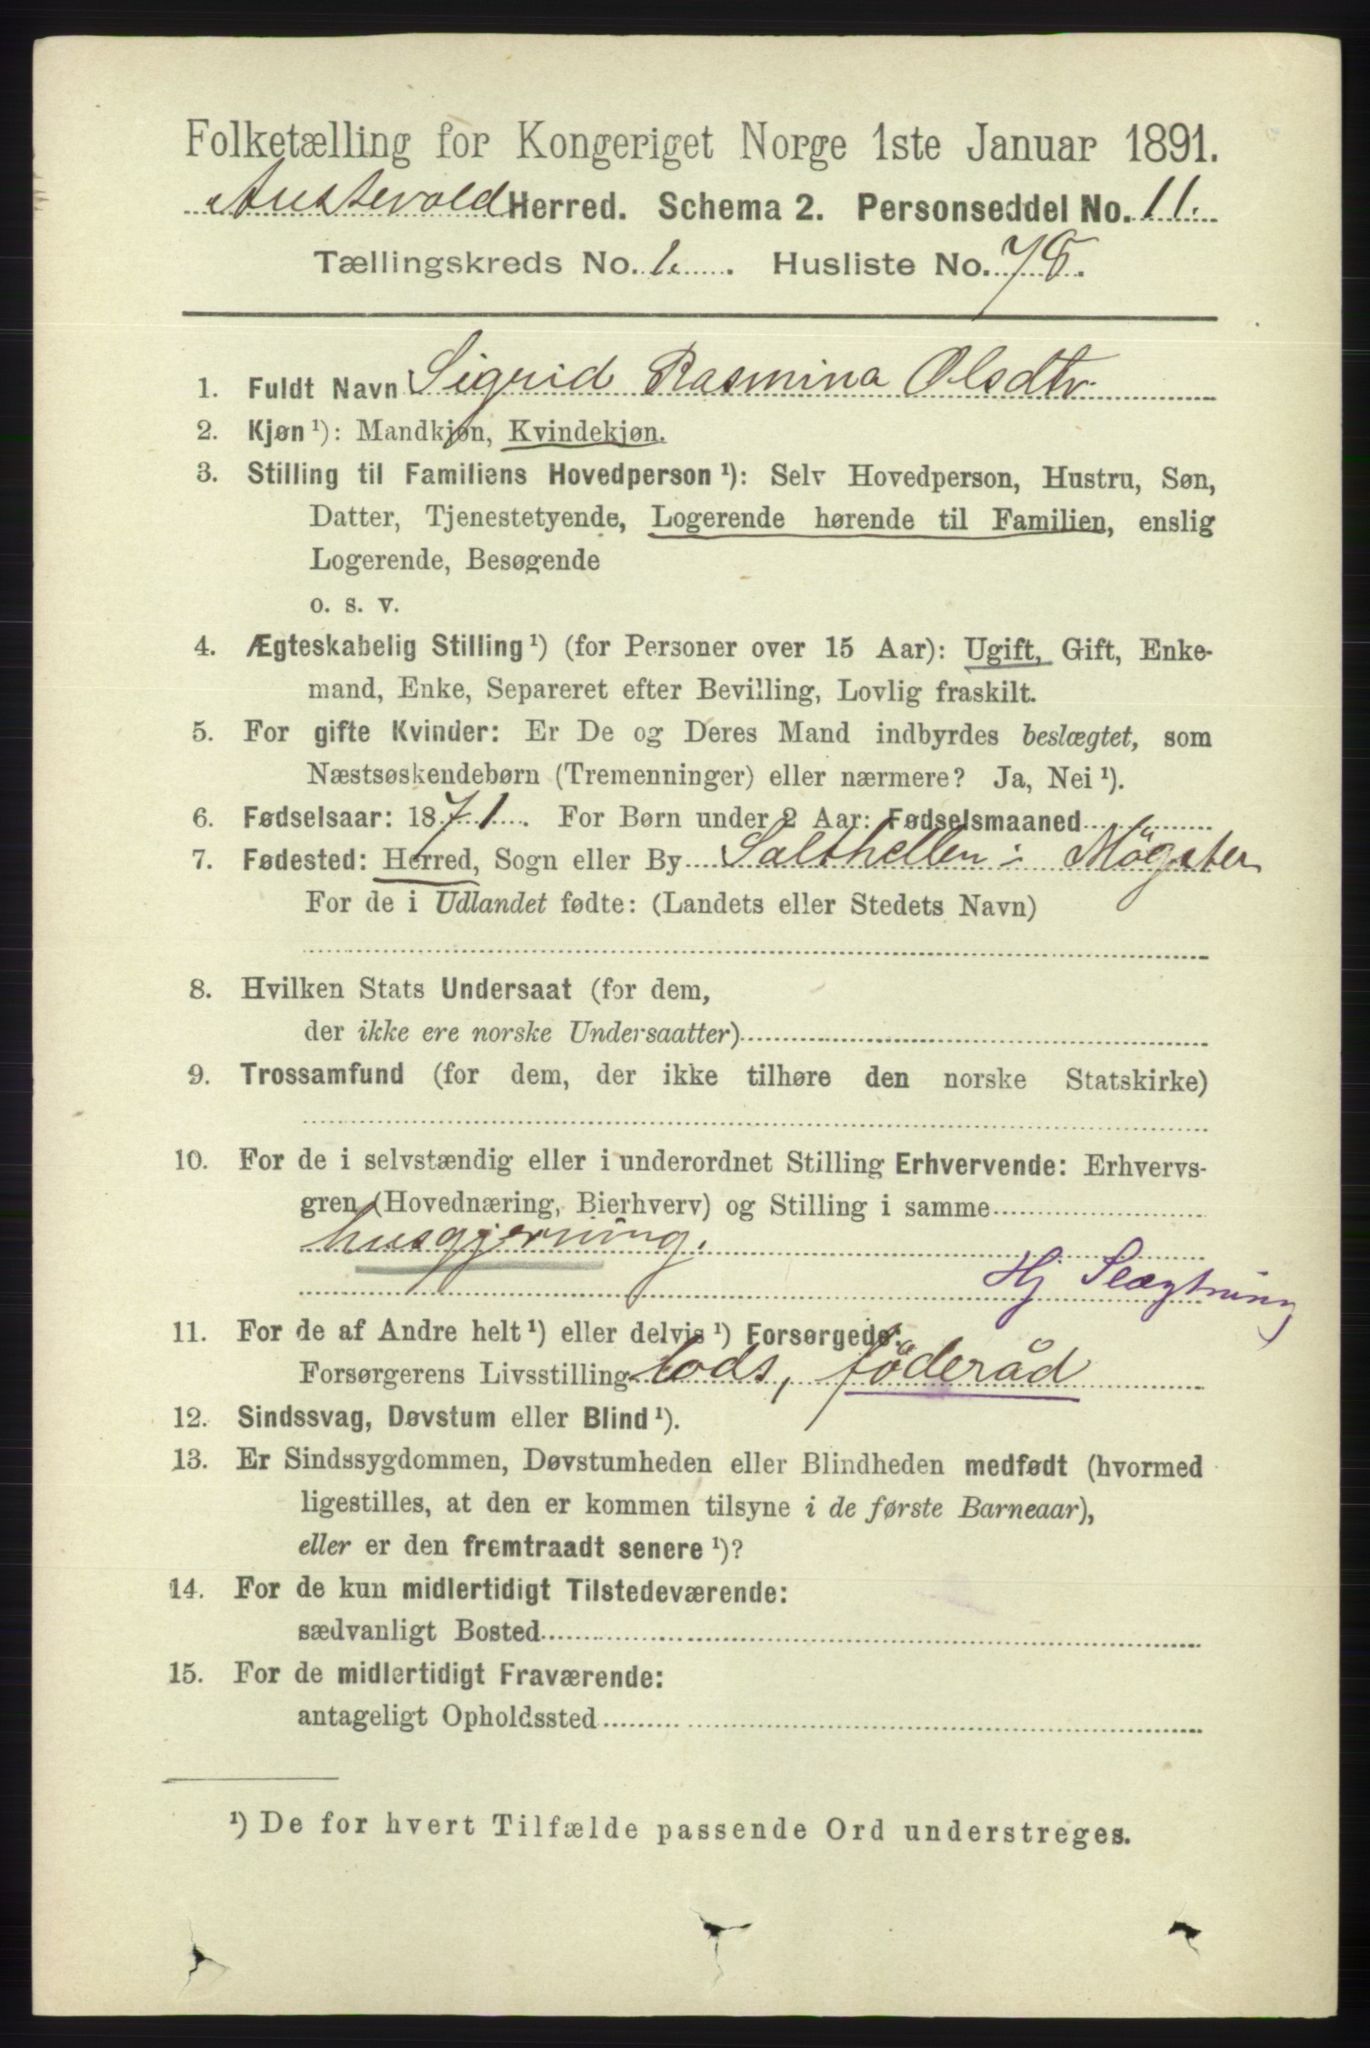 Folketælling for Kongeriget Norge 1ste Januar 1891.
Austevold Herred. Schema 2. Personseddel No. 11.
Tællingskreds No. 1. Husliste No. 78.
1. Fuldt Navn Sigrid Rasmina Olsdtr
2. Kjøn ¹): Mandkjøn, Kvindekjøn.
3. Stilling til Familiens Hovedperson ¹): Selv Hovedperson, Hustru, Søn,
Datter, Tjenestetyende, Logerende hørende til Familien, enslig
Logerende, Besøgende
o. s. v.
4. Ægteskabelig Stilling ¹) (for Personer over 15 Aar): Ugift, Gift, Enke-
mand, Enke, Separeret efter Bevilling, Lovlig fraskilt.
5. For gifte Kvinder: Er De og Deres Mand indbyrdes beslægtet, som
Næstsøskendebørn (Tremenninger) eller nærmere? Ja, Nei ¹).
6. Fødselsaar: 1871. For Børn under 2 Aar: Fødselsmaaned
7. Fødested: Herred, Sogn eller By Salthellen i Møgster
For de i Udlandet fødte: (Landets eller Stedets Navn)
8. Hvilken Stats Undersaat (for dem,
der ikke ere norske Undersaatter)
9. Trossamfund (for dem, der ikke tilhøre den norske Statskirke)
10. For de i selvstændig eller i underordnet Stilling Erhvervende: Erhvervs-
gren (Hovednæring, Bierhverv) og Stilling i samme
husgjerning.
Hj Slægtning
11. For de af Andre helt ¹) eller delvis ¹) Forsørgede:
Forsørgerens Livsstilling Lods, föderåd
12. Sindssvag, Døvstum eller Blind ¹).
13. Er Sindssygdommen, Døvstumheden eller Blindheden medfødt (hvormed
ligestilles, at den er kommen tilsyne i de første Barneaar),
eller er den fremtraadt senere ¹)?
14. For de kun midlertidigt Tilstedeværende:
sædvanligt Bosted
15. For de midlertidigt Fraværende:
antageligt Opholdssted
¹) De for hvert Tilfælde passende Ord understreges.